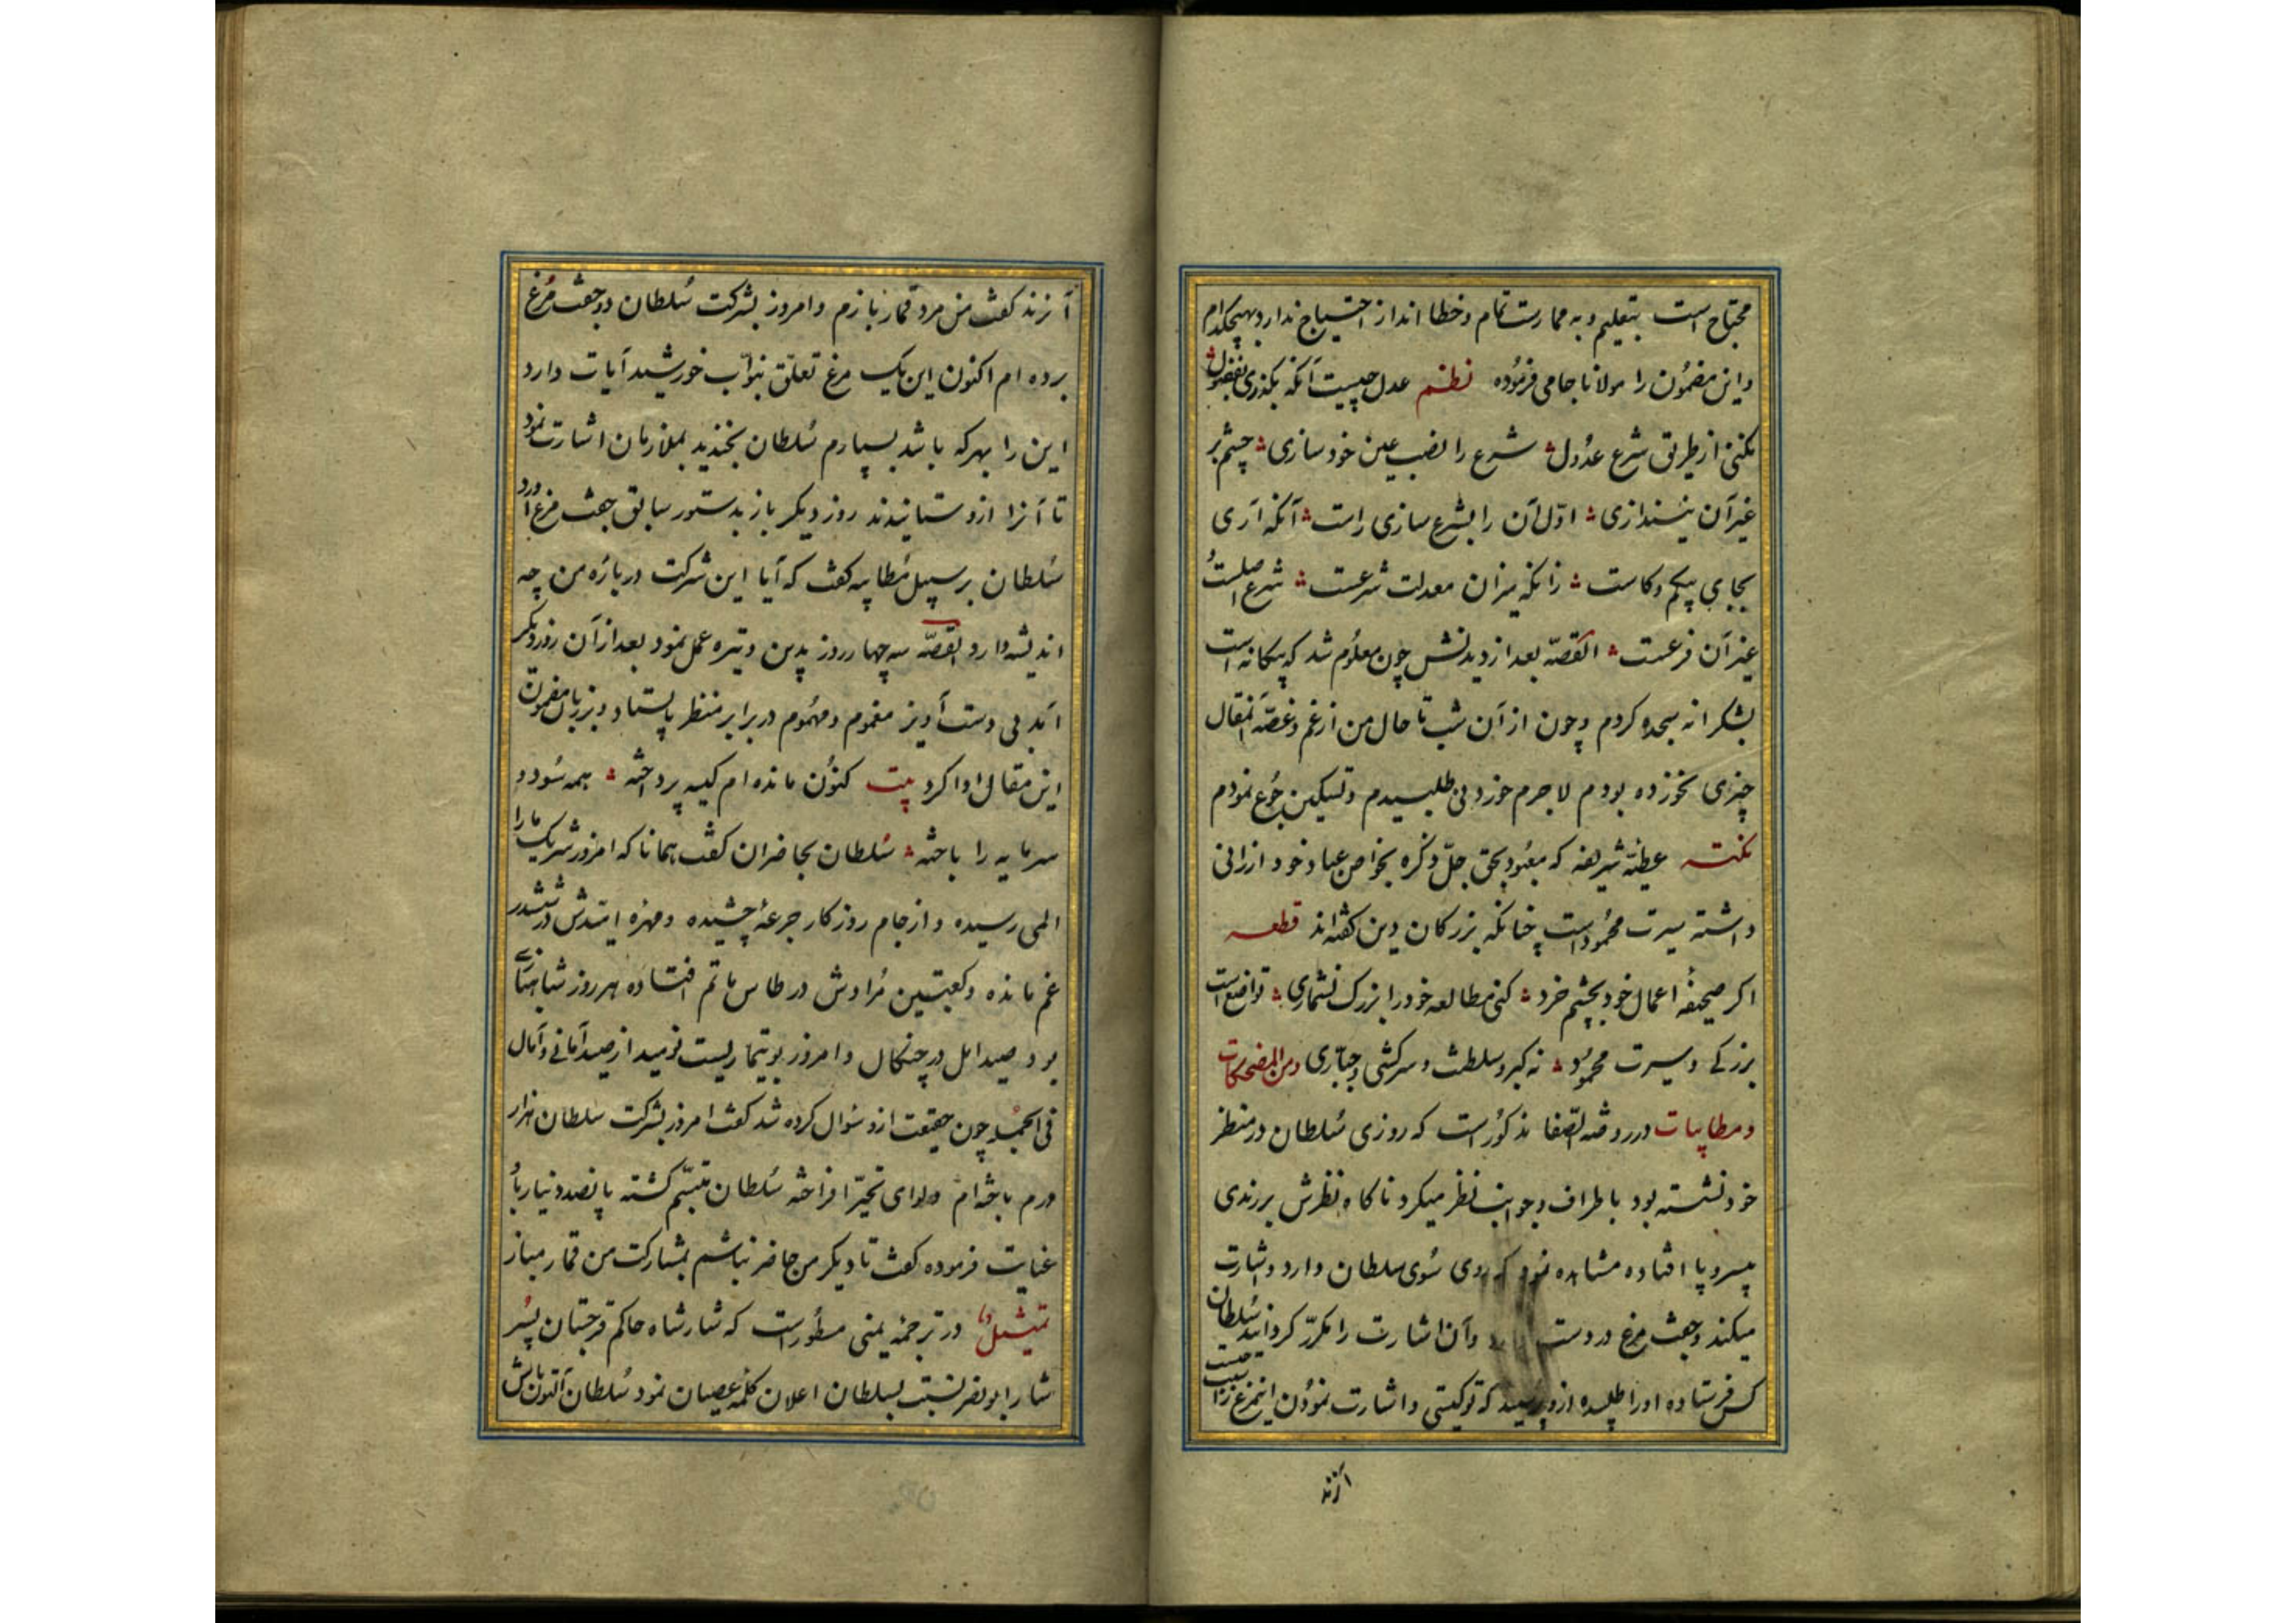 محتاج است بتعلیم و به ممارست تمام و خطا انداز احتیاج ندارد بهیچکدام
و این مضمون را مولانا جامی فرموده نظم عدل چیست آنکه بگذری بفضول
نکنی از طریق شرع عدول شرع را نصب عین خود سازی چشم بر
غیر آن نیندازی اول آن را بشرع سازی راست آنکه آری
بجای بیکم و کاست زانکه میزان معدلت شرعست شرع اصلست
غیر آن فرعست القصه بعد از دیدنش چون معلوم شد که بیکانه است
بشکرانه سجده کردم و چون از آن شب تا حال من از غم و غصه
چیزی نخورده بودم لاجرم خوردنی طلبیدم و تسکین جوع نمودم
نکته عطیه شریفه که معبود بحق جل ذکره بخواص عباد خود ارزانی
داشته سیرت محمود است چنانکه بزرکان دین کفته‌اند قطعه
اکر صحیفه اعمال خود بچشم خرد کنی مطالعه خود را بزرک نشماری تواضع است
بزرکی و سیرت محمود نه کبر و سلطنت و سرکشی و جباری و من المضحکات
و مطایبات در روضه الصفا مذکور است که روزی سلطان در منظر
خود نشسته بود باطراف و جوانب نظر میکرد ناکاه نظرش بر رندی
بیسر و پا افتاده مشاهده نمود که روی سوی سلطان دارد و اشارت
میکند و جفت مرغ در دست دارد و آن اشارت را مکرر کردانید سلطان
کس فرستاده او را طلبیده ازو پرسید که تو کیستی و اشارت نمودن این مرغ را سبب چیست
آن رند
آن رند کفت من مرد قماربازم و امروز بشرکت سلطان دو جفت مرغ
برده ام اکنون این یک مرغ تعلق بنواب خورشید آیات دارد
این را بهرکه باشد بسپارم سلطان بخندید بملازمان اشارت نمود
تا آنرا ازو ستانیدند روز دیکر باز بدستور سابق جفت مرغ آورد
سلطان بر سبیل مطایبه کفت که آیا این شرکت درباره من چه
اندیشه دارد القصه سه چهار روز بدین وتیره عمل نمود بعد از آن روز دیکر
آمد بی دست آویز مغموم و مهموم در برابر منظر بایستاد و بزبان مضمون
این مقال ادا کرد بیت کنون مانده ام کیسه پرداخته همه سود و
سرمایه را باخته سلطان بحاضران کفت همانا که امروز شریک ما را
المی رسیده و از جام روزکار جرعه چشیده و مهره امیدش در ششدر
غم مانده و کعبتین مرادش در طاس ماتم افتاده هر روز شاهبازی
بود صید امل در چنکال و امروز بوتیماریست نومید از صید آمانی و آمال
فی الجمله چون حقیقت ازو سوال کرده شد کفت امروز بشرکت سلطان هزار
درم باخته‌ام و لوای تحیر افراخته سلطان متبسم کشته پانصد دینار باو
عنایت فرموده کفت تا دیکر من حاضر نباشم بمشارکت من قمار مباز
تمثیل در ترجمه یمنی مسطور است که شار شاه حاکم غرجستان پسر
شار ابو نصر نسبت بسلطان اعلان کلمه عصیان نمود سلطان آلتون تاش